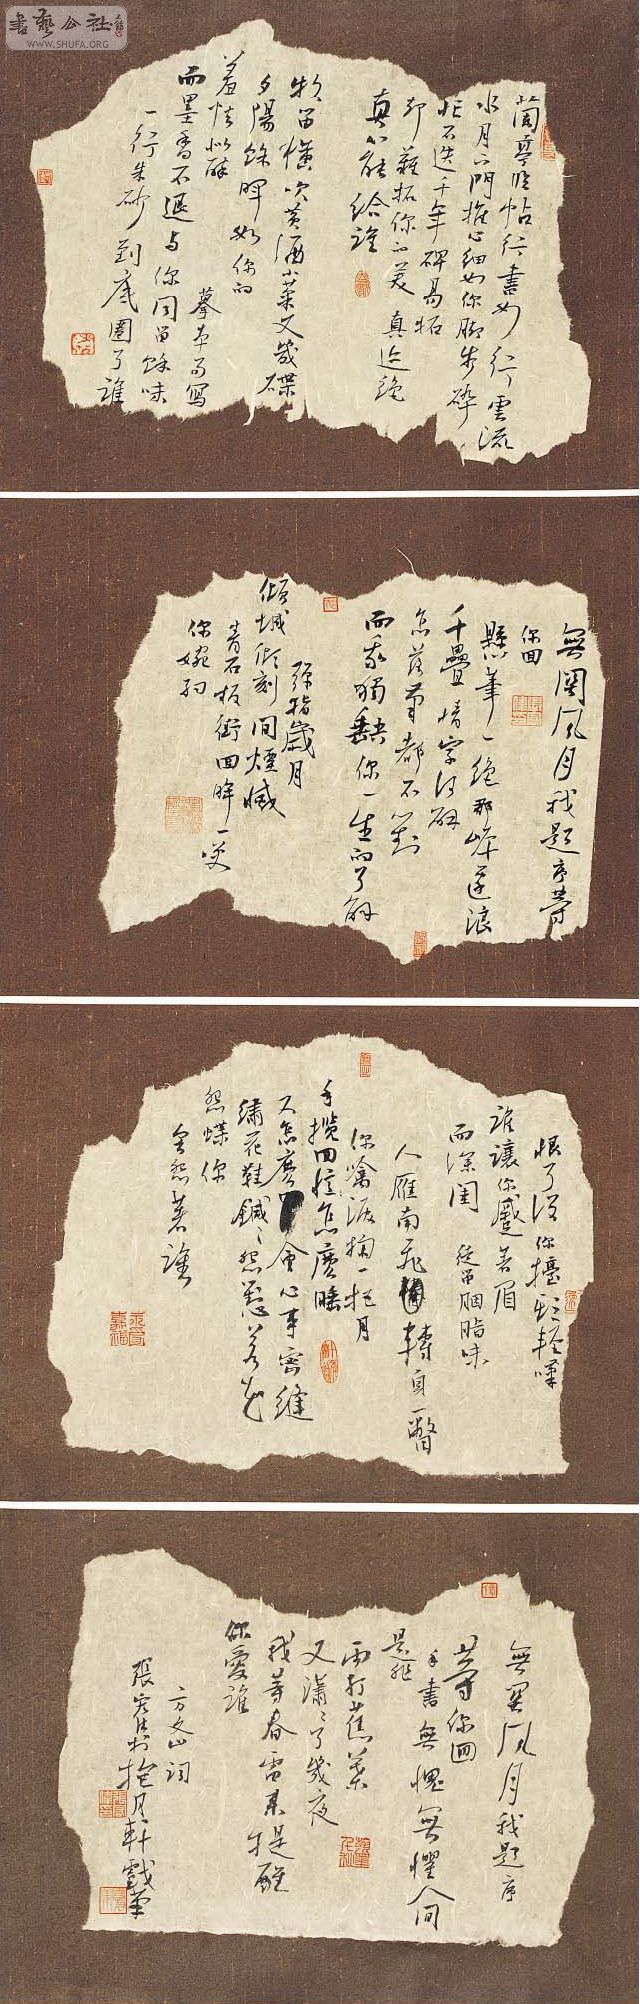 書藝公社
WWW.SHUFA.ORG
蘭亭臨帖行書如行雲流
水月下門推心細如你腳步碎
忙不迭千年碑易拓
卻難拓你的美真迹絕
真心能給誰
牧笛橫吹黃酒小菜又幾碟
夕陽餘暉如你的
羞怯似醉
摹本易寫
而墨香不退與你同留餘味
一行朱砂到底圈了誰
無關風月我題序等
你回
懸筆一絕那岸邊浪
千疊情字何解
怎落筆都不對
而我獨缺你一生的了解
彈指歲月
傾城頃刻間煙滅
青石板街回眸一笑
你婉約
恨了沒你搖頭輕嘆
誰讓你蹙著眉
而深閨徒留胭脂味
人雁南飛轉身一瞥
你噙淚掬一把月
手攬回憶怎麼睡
又怎麼會心事密縫
繡花鞋鍼鍼怨懟若花
怨蝶你
會怨著誰
無關風月我題序
等你回
手書無愧無懼人間
是非
雨打蕉葉
又瀟瀟了幾夜
我等春雷來提醒
你愛誰
方文山詞
張於抱月軒戲筆